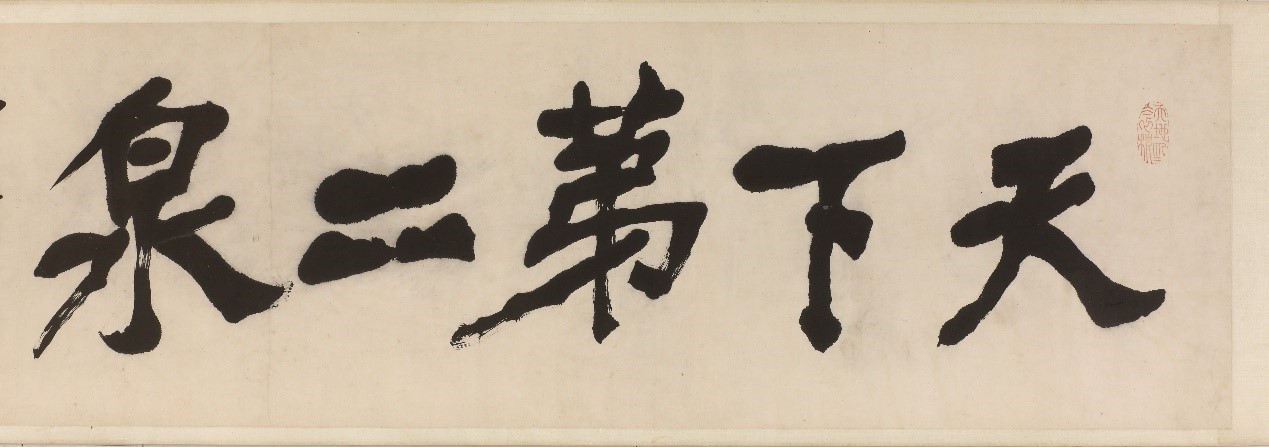 天下第二泉